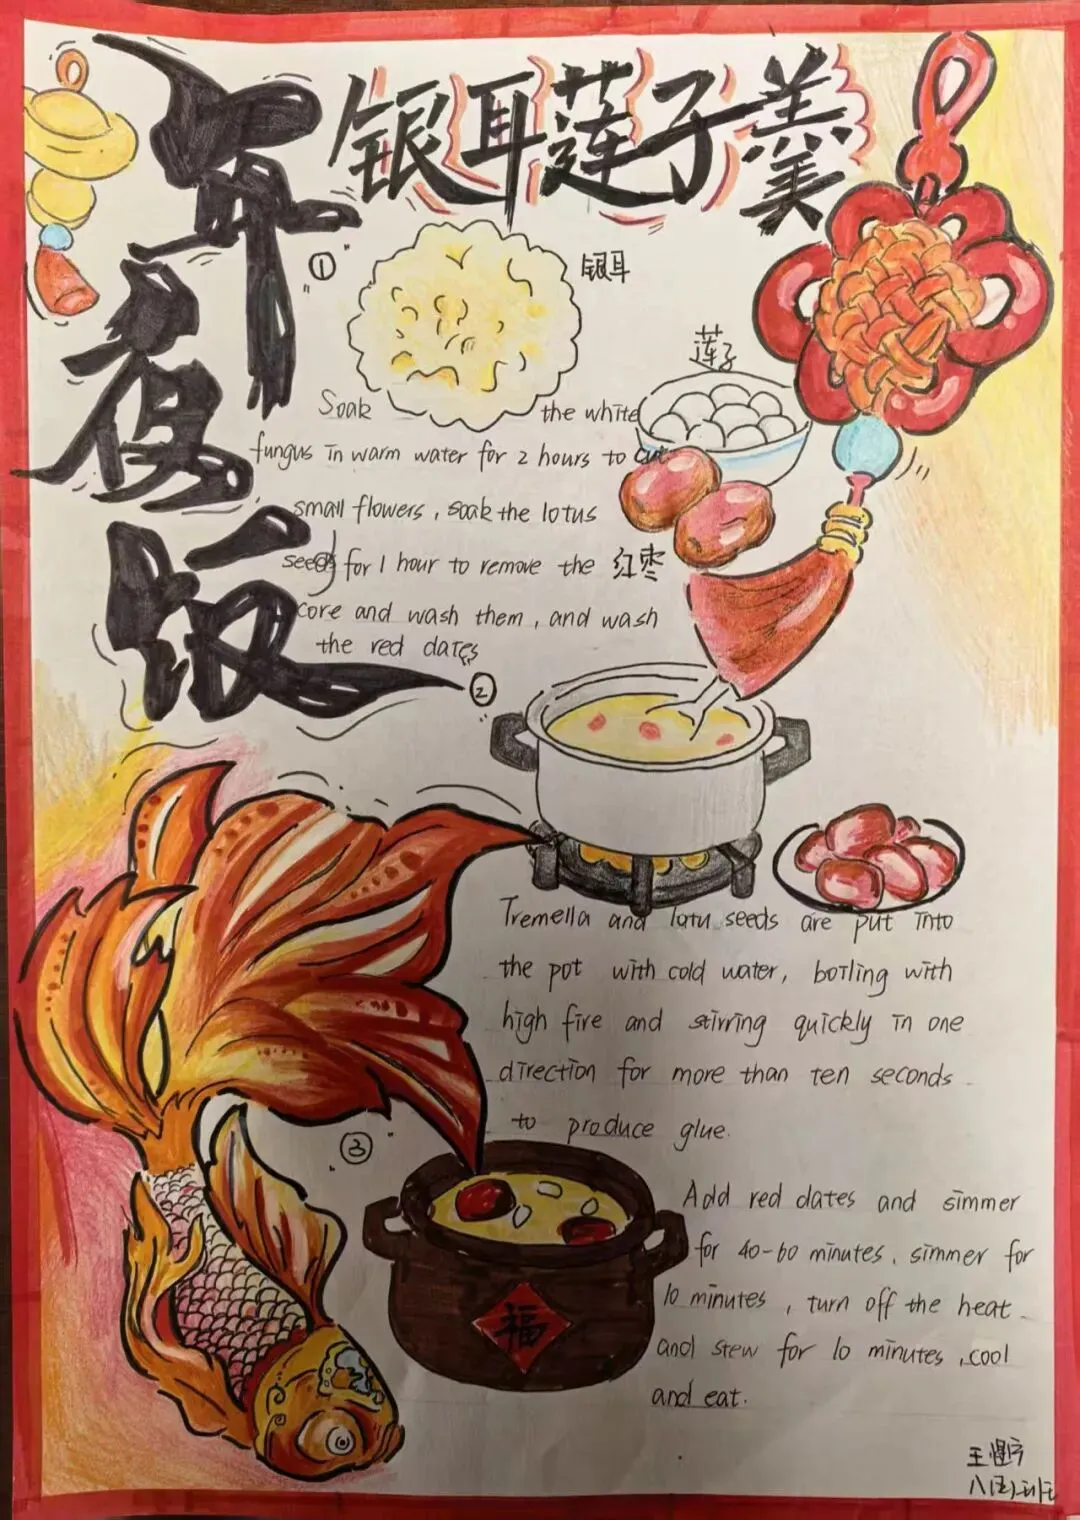 年夜饭
银耳莲子羹
①
银耳
莲子
Soak the white
fungus in warm water for 2 hours to cut
small flowers, soak the lotus
seeds for 1 hour to remove the
红枣
core and wash them, and wash
the red dates
②
Tremella and lotu seeds are put into
the pot with cold water, boiling with
high fire and stirring quickly in one
direction for more than ten seconds
to produce glue.
③
Add red dates and simmer
for 40-60 minutes, simmer for
10 minutes, turn off the heat
and stew for 10 minutes, cool
and eat.
福